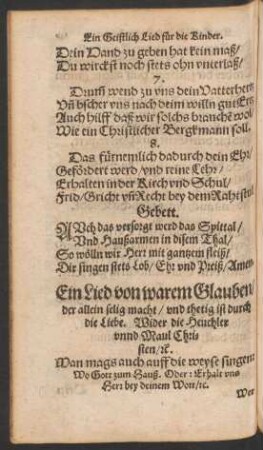 Ein Geistlich Lied für die Kinder.
Dein Hand zu geben hat kein maß/
Du wirckst noch stets ohn vnterlaß/
7.
Drum̃ wend zu vns dein Vatterhertz
Vñ bscher vns nach deim willn gut Ertz
Auch hilff daß wir solchs brauchẽ wol
Wie ein Christlicher Bergkmann soll.
8.
Das fürnemlich dadurch dein Ehr/
Gefördert werd/ vnd reine Lehr/
Erhalten in der Kirch vnd Schul/
Frid/ Gricht vñ Recht bey dem Rahtstul
Gebett.
AVch das versorgt werd das Spittal/
Vnd Haußarmen in disem Thal/
So wölln wir Herr mit gantzem fleiß/
Dir singen stets Lob/ Ehr vnd Preiß/ Amen
Ein Lied von warem Glauben/
der allein selig macht/ vnd thetig ist durch
die Liebe. Wider die Heuchler
vnnd Maul Chri
sten/ ꝛc.
Man mags auch auff die weyse singen:
Wo Gott zum Hauß. Oder: Erhalt vns
Herr bey deinem Wort/ ꝛc.
Wer